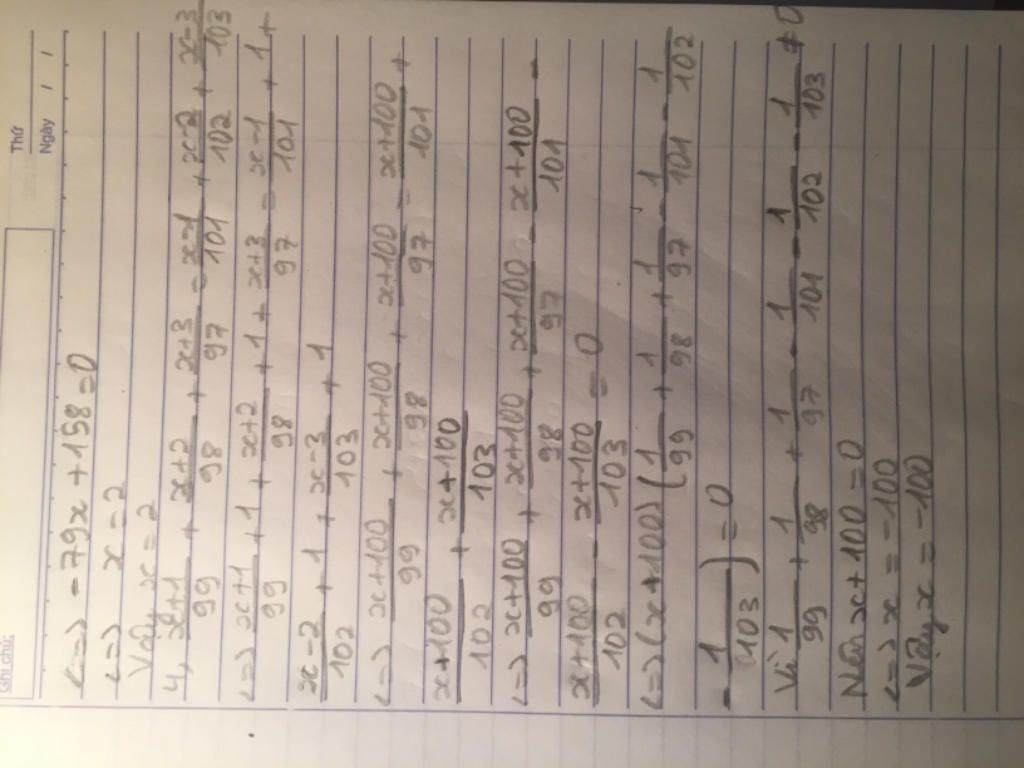 Ghi chú:
Thứ
Ngày / /
<=> -79x + 158 = 0
<=> x = 2
Vậy x = 2
4, \frac{x+1}{99} + \frac{x+2}{98} + \frac{x+3}{97} = \frac{x-1}{101} + \frac{x-2}{102} + \frac{x-3}{103}
<=> \frac{x+1}{99} + 1 + \frac{x+2}{98} + 1 + \frac{x+3}{97} = \frac{x-1}{101} + 1 +
\frac{x-2}{102} + 1 + \frac{x-3}{103} + 1
<=> \frac{x+100}{99} + \frac{x+100}{98} + \frac{x+100}{97} = \frac{x+100}{101} +
\frac{x+100}{102} + \frac{x+100}{103}
<=> \frac{x+100}{99} + \frac{x+100}{98} + \frac{x+100}{97} - \frac{x+100}{101} -
\frac{x+100}{102} - \frac{x+100}{103} = 0
<=> (x+100) ( \frac{1}{99} + \frac{1}{98} + \frac{1}{97} - \frac{1}{101} - \frac{1}{102}
- \frac{1}{103} ) = 0
Vì \frac{1}{99} + \frac{1}{98} + \frac{1}{97} - \frac{1}{101} - \frac{1}{102} - \frac{1}{103} ≠ 0
Nên x + 100 = 0
<=> x = -100
Vậy x = -100